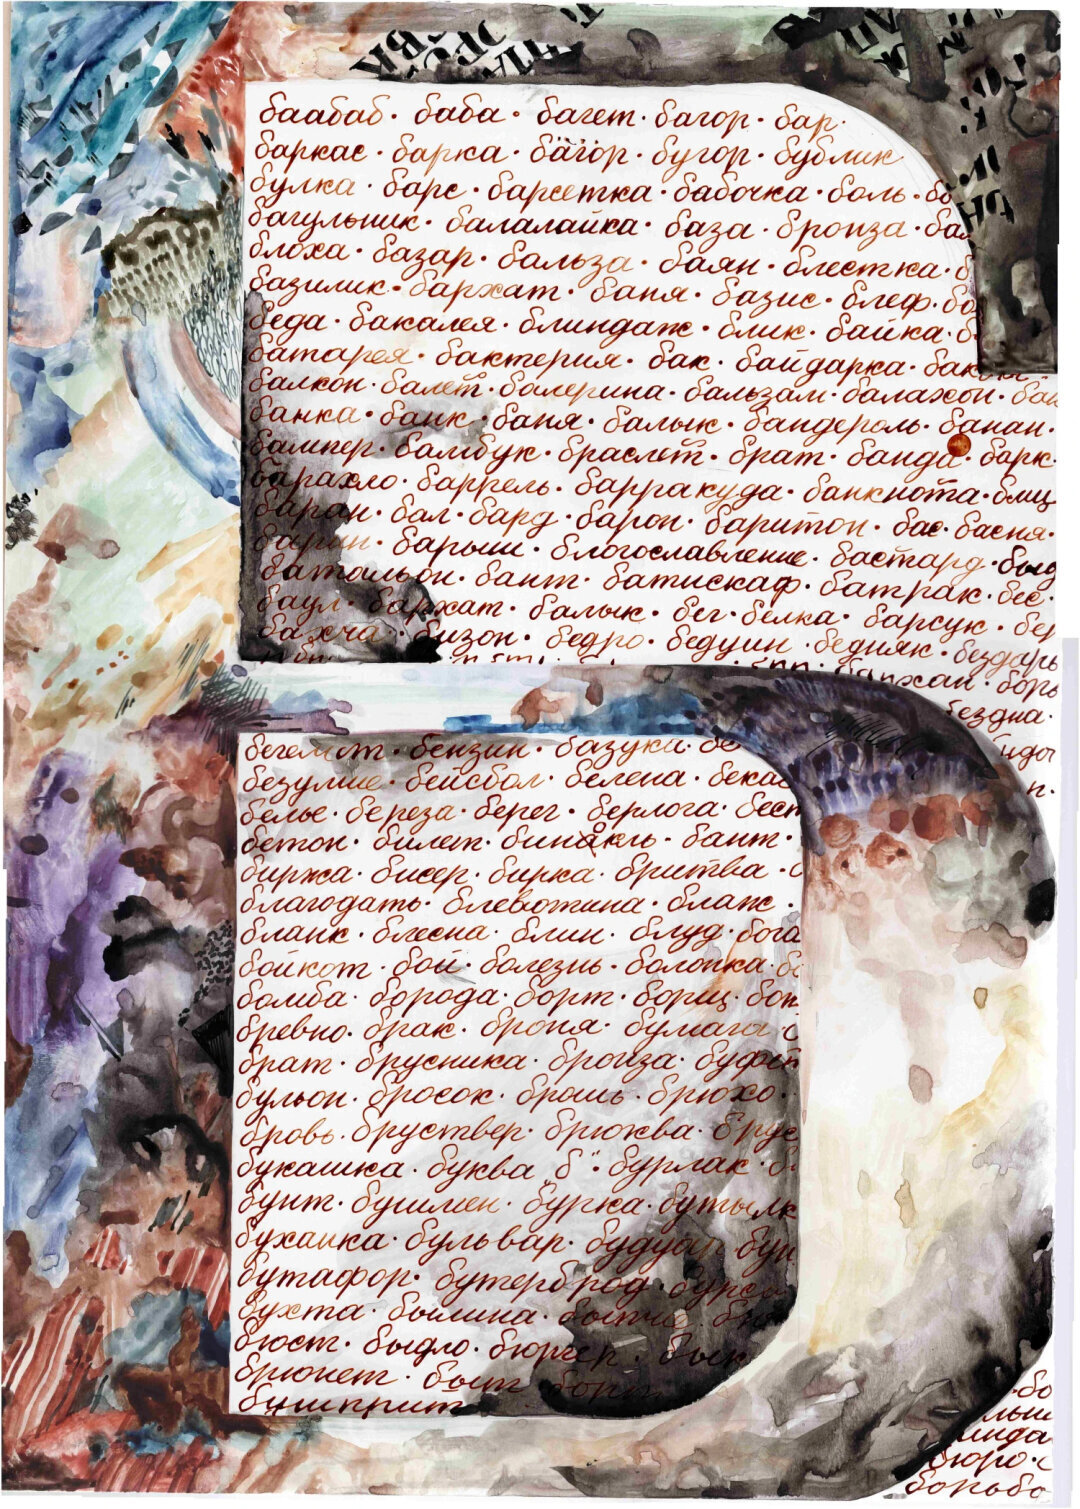 баабаб · баба · багет · багор · бар ·
баркас · барка · багор · бугор · бублик
булка · барс · барсетка · бабочка · боль ·
багульник · балалайка · база · бронза ·
блоха · базар · бальза · баян · блестка ·
базилик · бархат · баня · базис · блеф ·
беда · бакалея · блиндаж · блик · байка ·
батарея · бактерия · бак · байдарка ·
балкон · балет · балерина · бальзам · балахон ·
банка · банк · баня · балык · бандероль · банан ·
бампер · бамбук · браслет · брат · банда · барк ·
барахло · баррель · барракуда · банкнота · блиц
баран · бал · бард · барон · баритон · бас · басня ·
барыш · благославление · бастард ·
батальон · бант · батискаф · батрак · бес ·
баул · бархат · балык · бег · белка · барсук ·
бахча · бизон · бедро · бедуин · бедняк · бездарь
бездна ·
бегемот · бензин · базука ·
безумие · бейсбол · белена ·
белье · береза · берег · берлога ·
бетон · билет · бинокль · бант ·
биржа · бисер · бирка · бритва ·
благодать · блевотина · блаж ·
бланк · блесна · блин · блуд ·
бойкот · бой · болезнь · болонка ·
бомба · борода · борт · борщ ·
бревно · брак · броня · бумага
брат · брусника · бронза ·
бульон · бросок · брошь · брюхо ·
бровь · бруствер · брюква ·
букашка · буква "б" · бурлак ·
бунт · бушмен · бурка · бутылк
буханка · бульвар · будуар
бутафор · бутерброд ·
бухта · былина ·
бюст · быдло · бюргер · бык
брюнет · быт
бушприт
бюро ·